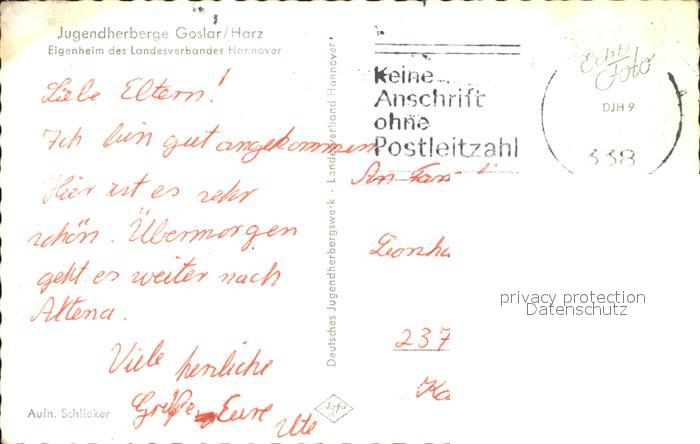 Jugendherberge Goslar/Harz
Eigenheim des Landesverbandes Hannover
Liebe Eltern!
Ich bin gut angekommen
Hier ist es sehr
schön. Übermorgen
geht es weiter nach
Altena.
Viele herzliche
Grüße Eure
Ute
Aufn. Schlieker
Deutsches Jugendherbergswerk · Landesverband Hannover
Agfa
Keine
Anschrift
ohne
Postleitzahl
Echt
Foto
DJH 9
338
An Fam
Leonha
237
Ka
privacy protection
Datenschutz